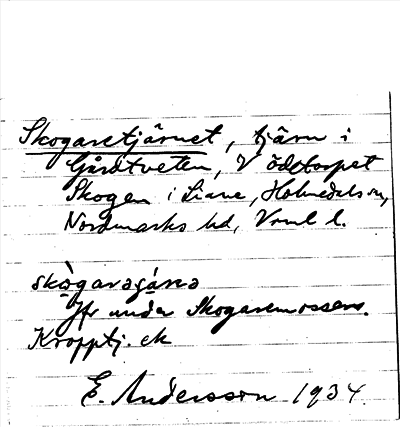 Skogaretjärnet, tjärn i
Gårdtveten, V ödetorpet
Skogen i Liane, Holmedals sn,
Nordmarks hd, Vrml l.
skògaragáṇa
Jfr under Skogaremossen.
Kropptj. ek
E. Andersson 1934.